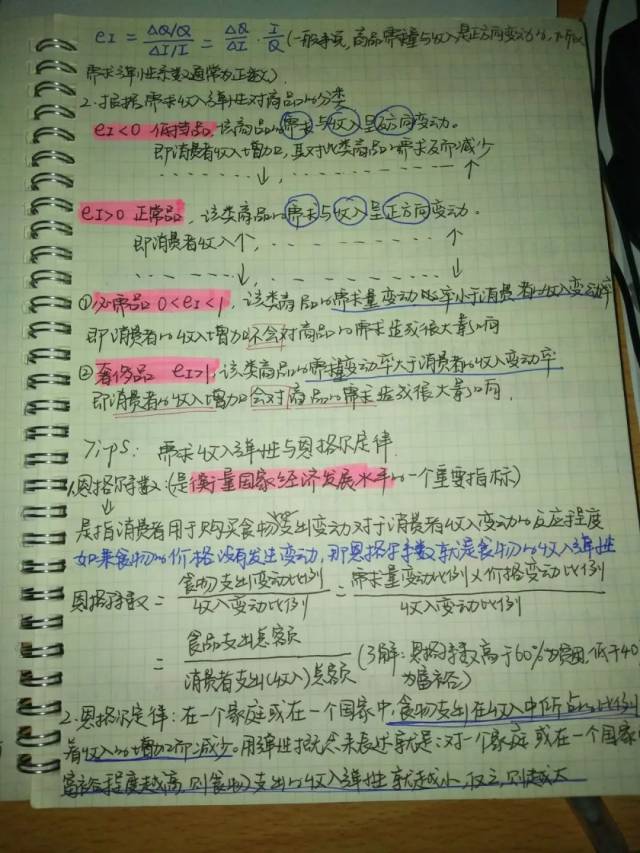 eI = ΔQ/Q / ΔI/I = ΔQ/ΔI · I/Q (一般来说,商品需求量与收入是正方向变动的,所以
需求弹性系数通常为正数).
2.根据需求收入弹性对商品的分类
eI<0 低档品,该商品的需求与收入呈反方向变动。
即消费者收入增加,其对此类商品的需求反而减少
......↓,......↑
eI>0 正常品,该类商品的需求与收入呈正方向变动.
即消费者收入↑,......↑
......↓,......↓
①必需品 0<eI<1,该类商品的需求量变动的率小于消费者的收入变动率
即消费者的收入增加不会对商品的需求造成很大影响
②奢侈品 eI>1,该类商品的需求量变动率大于消费者的收入变动率
即消费者的收入增加会对商品的需求造成很大影响.
Tips: 需求收入弹性与恩格尔定律.
1.恩格尔系数:(是衡量国家经济发展水平的一个重要指标)
↓
是指消费者用于购买食物支出变动对于消费者收入变动的反应程度
如果食物的价格没有发生变动,那恩格尔系数就是食物的收入弹性
恩格尔系数 = 食物支出变动比例/收入变动比例 = 需求量变动比例×价格变动比例/收入变动比例
= 食品支出总额/消费者支出(收入)总额 (了解:恩格尔系数高于60%为贫困,低于40
为富裕)
2.恩格尔定律:在一个家庭或在一个国家中,食物支出在收入中所占的比例
着收入的增加而减少。用弹性概念来表达就是:对一个家庭或在一个国家
富裕程度越高,则食物支出的收入弹性就越小,反之,则越大